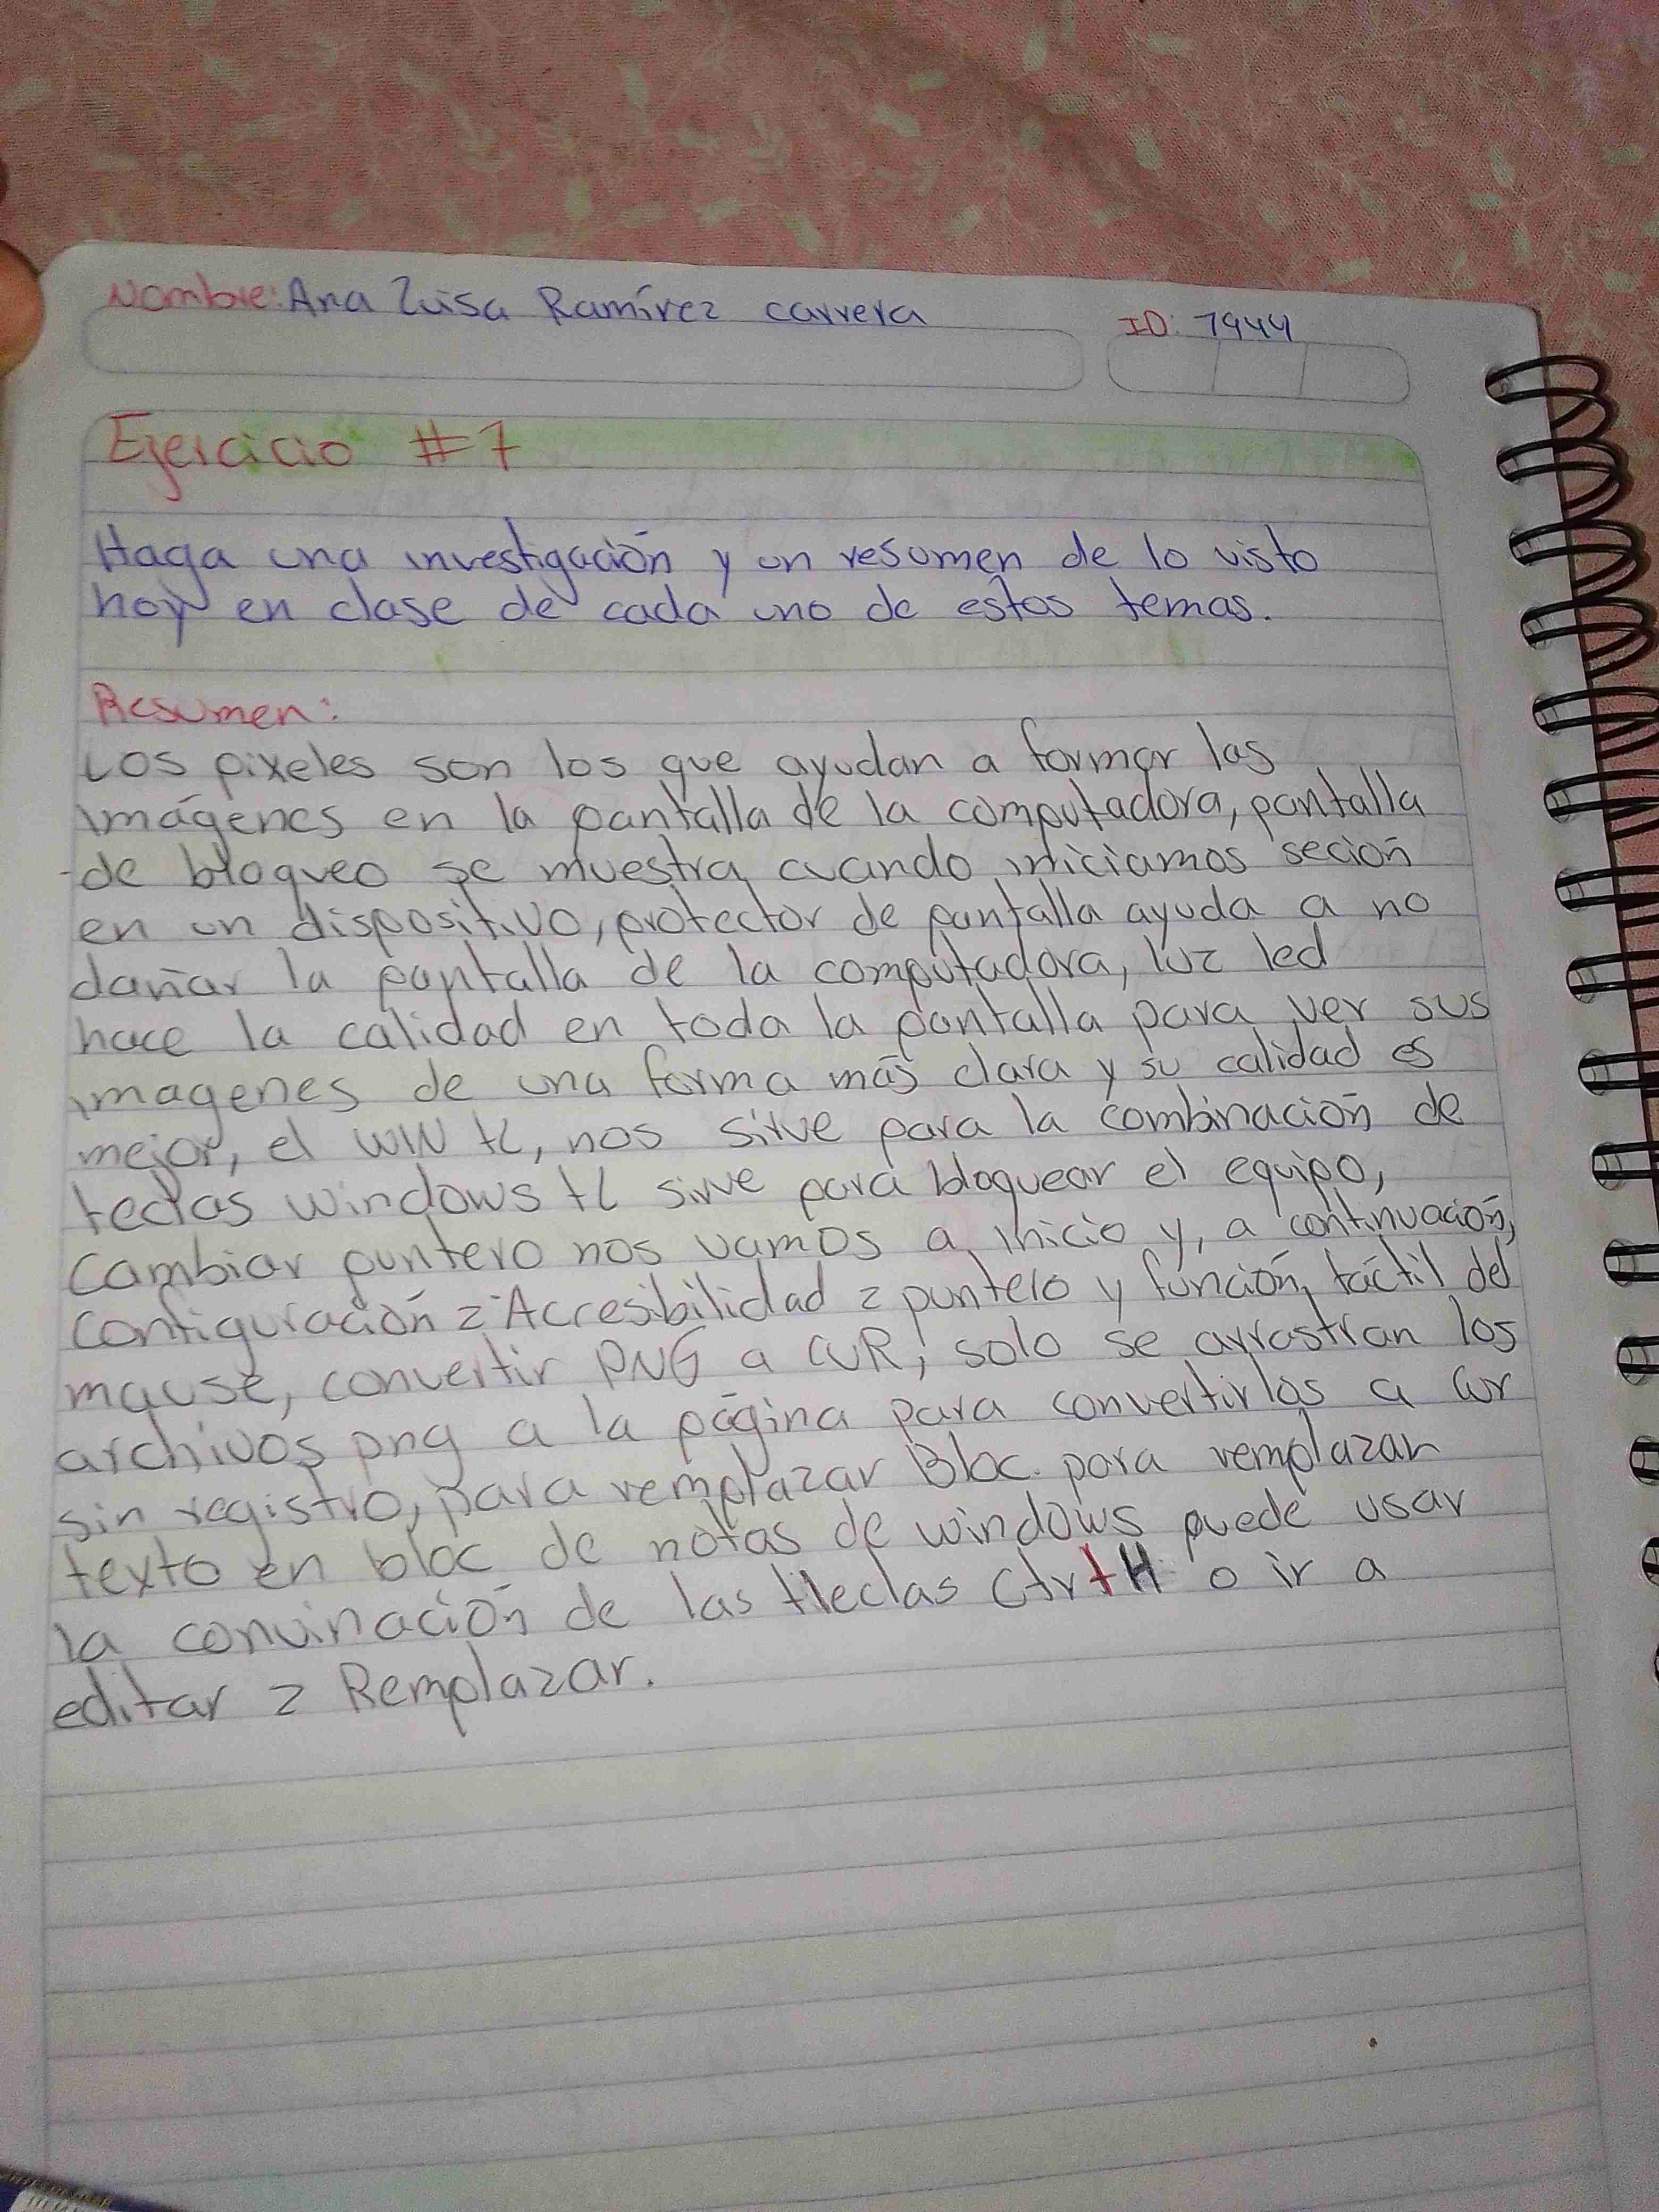 Nombre: Ana Luisa Ramírez carrera
ID: 7944
Ejercicio #7
Haga una investigación y un resumen de lo visto
hoy en clase de cada uno de estos temas.
Resumen:
Los pixeles son los que ayudan a formar las
imágenes en la pantalla de la computadora, pantalla
de bloqueo se muestra cuando iniciamos seción
en un dispositivo, protector de pantalla ayuda a no
dañar la pantalla de la computadora, luz led
hace la calidad en toda la pantalla para ver sus
imagenes de una forma más clara y su calidad es
mejor, el WIN +L, nos sirve para la combinación de
teclas windows +L sirve para bloquear el equipo,
Cambiar puntero nos vamos a inicio y, a continuación,
Configuración z Accesibilidad z puntero y función táctil del
mause, convertir PNG a CUR, solo se arrastran los
archivos png a la página para convertirlos a cur
sin registro, para remplazar Bloc. para remplazar
texto en bloc de notas de windows puede usar
la convinación de las tleclas Ctr+H o ir a
editar z Remplazar.